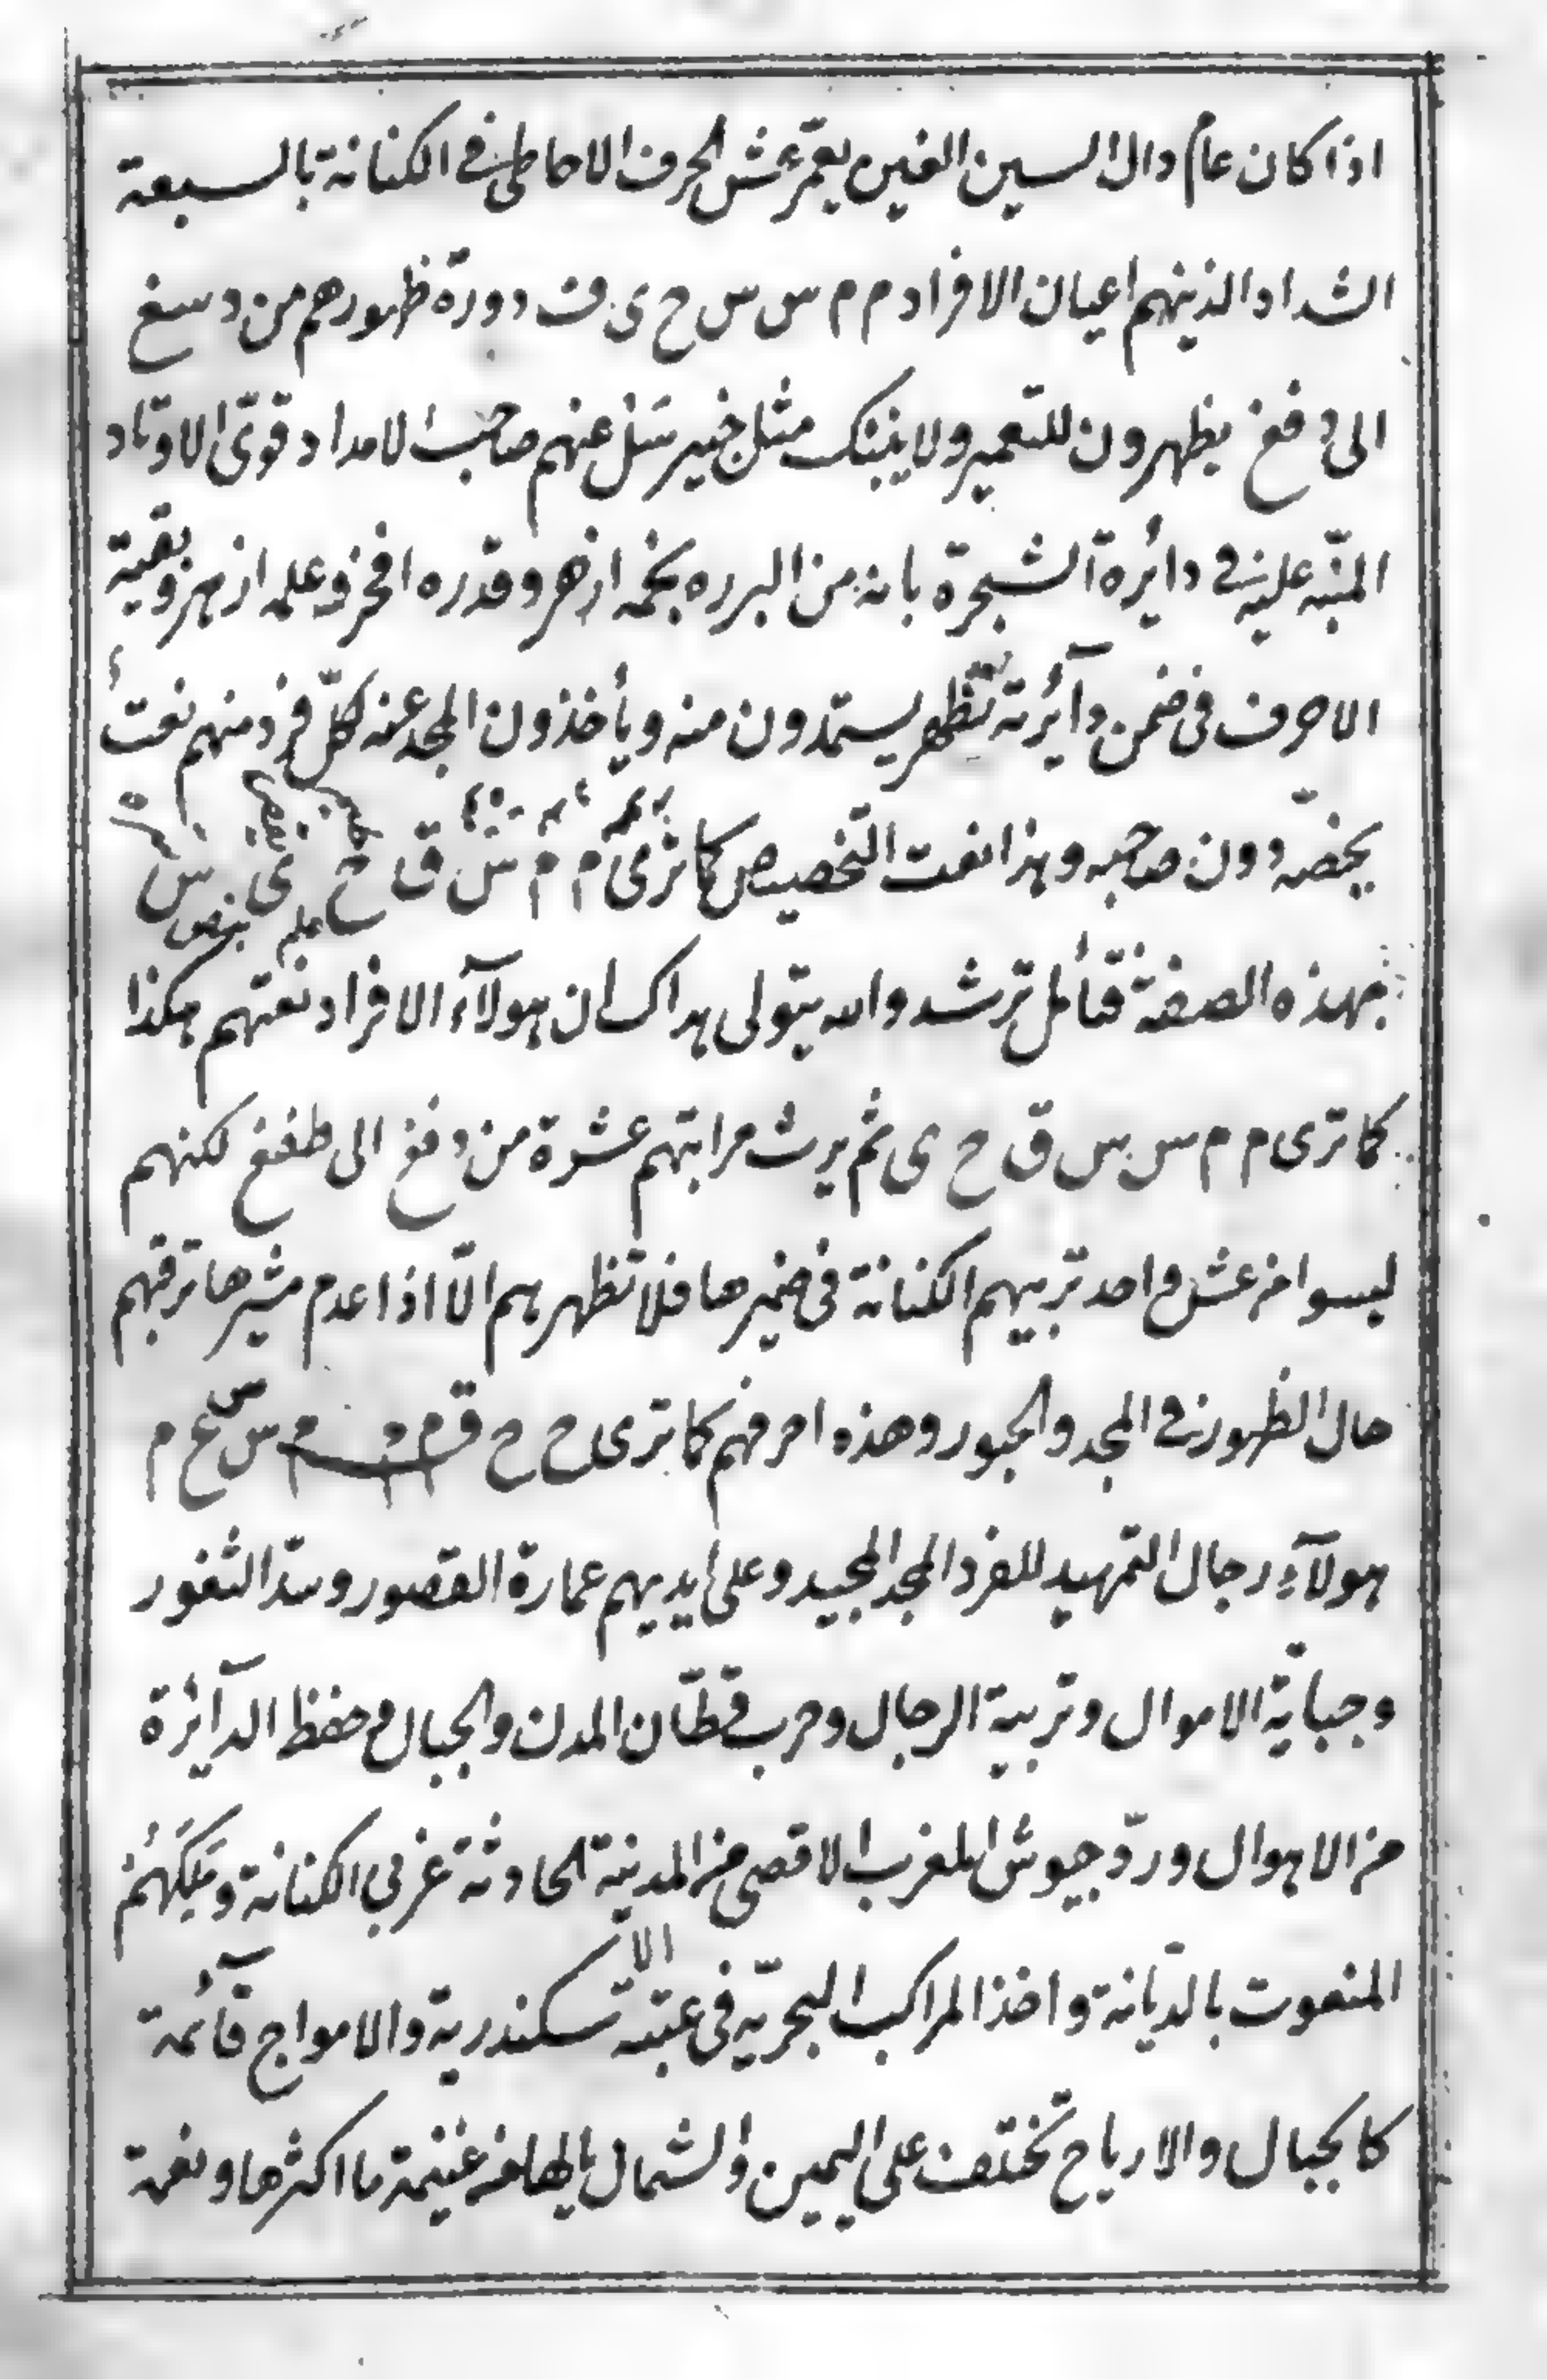 اذا كان عام دال السين الغين يعمّر عش الحرف الاحاطى فى الكنانة بالسبعة
الشداد الذينهم اعيان الافراد م م س س ح ى ق دورة ظهورهم من دسغ
الى دفغ يظهرون للتعمير ولا ينبئك مثل خبير سَئل عنهم صاحب الامداد وقوّى الاوتاد
المنبّه عليه فى دائرة الشجرة بانه من البرره نجمه ازهر وقدره افخر وعلمه ازهر وبقية
الاحرف فى ضمن دآئرته تظهر يستمدون منه ويأخذون المجد عنه لكلّ فرد منهم نعتٌ
يخصّه دون صاحبه وهذا نعت التخصيص كما ترى م م س ق ح ى س
بهذه الصفة فتأمل ترشد والله يتولى هداك ان هولآء الافراد نعتهم هكذا
كما ترى م م س س ق ح ى ثم يرث مرابتهم عشرة من دفغ الى طفغ لكنهم
ليسوا من عش واحد تربيهم الكنانة فى ضميرها فلا تظهرهم الّا اذا عدم مشيرها ترقبهم
حال الظهور فى المجد والحبور وهذه احرفهم كما ترى ح ح ق م م م س ع م س
هولآء رجال التمهيد للفرد المجد المجيد وعلى أيديهم عمارة القصور وسدّ الثغور
وجبايّة الاموال وتربية الرجال وحرب قطّان المدن والجبال وحفظ الدآئرة
من الاهوال وردّ جيوش المغرب الاقصى من المدينة الحادثة غربي الكنانة ومَلِكَهُمُ
المنعوت بالدّيانة واخذ المراكب البحريّه فى عتبته الاسكندرية والامواج قآئمة
كالجبال والارياح تختلف على اليمين والشمال يالها من غنيمة ما اكثرها ونعمة